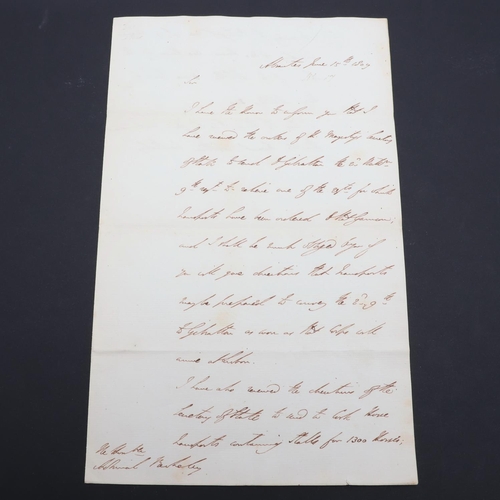 Abrantes June 15th 1809
Sir
I have the honor to inform you that I
have received the orders of His Majesty's Secretary
of State to send to Gibraltar the 2d Battn
9th Regt to relieve one of the for which
Transports have been ordered to that Garrison;
and I shall be much obliged to you if
you will give directions that Transports
may be prepared to convey the 2d 9th
to Gibraltar as soon as that Corps will
arrive at Lisbon.
I have also received the directions of the
Secretary of State to send to Cork Horse
Transports containing Stalls for 1300 Horses,
The Honble
Admiral Berkeley